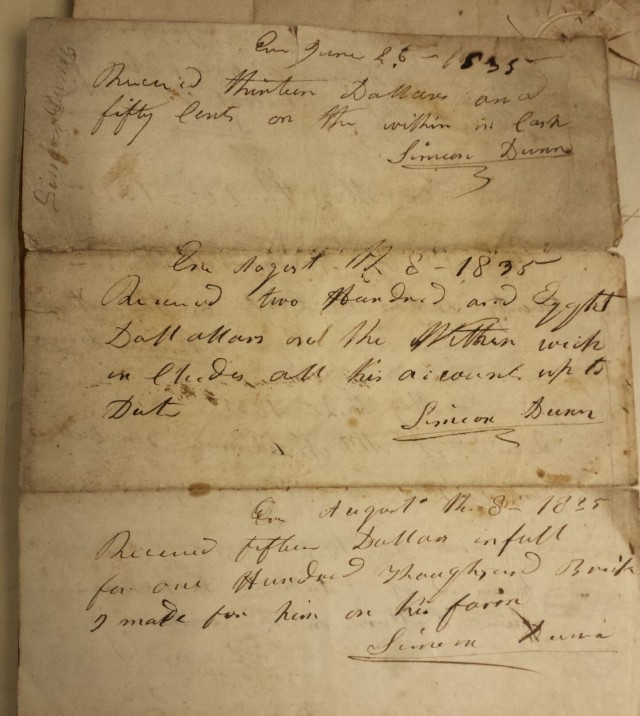 June 26 - 1835
Received thirteen Dollars and
fifty Cents on the within in Cash
Simeon Dunn
August th 8 - 1835
Received two Hundred and Eyght
Dallallars and the Within wich
in Cludes all his accounts up to
Date
Simeon Dunn
August th 8 - 1835
Received fifteen Dollars in full
for one Hundred Thoughsend Brick
I made for him on his farm
Simeon Dunn